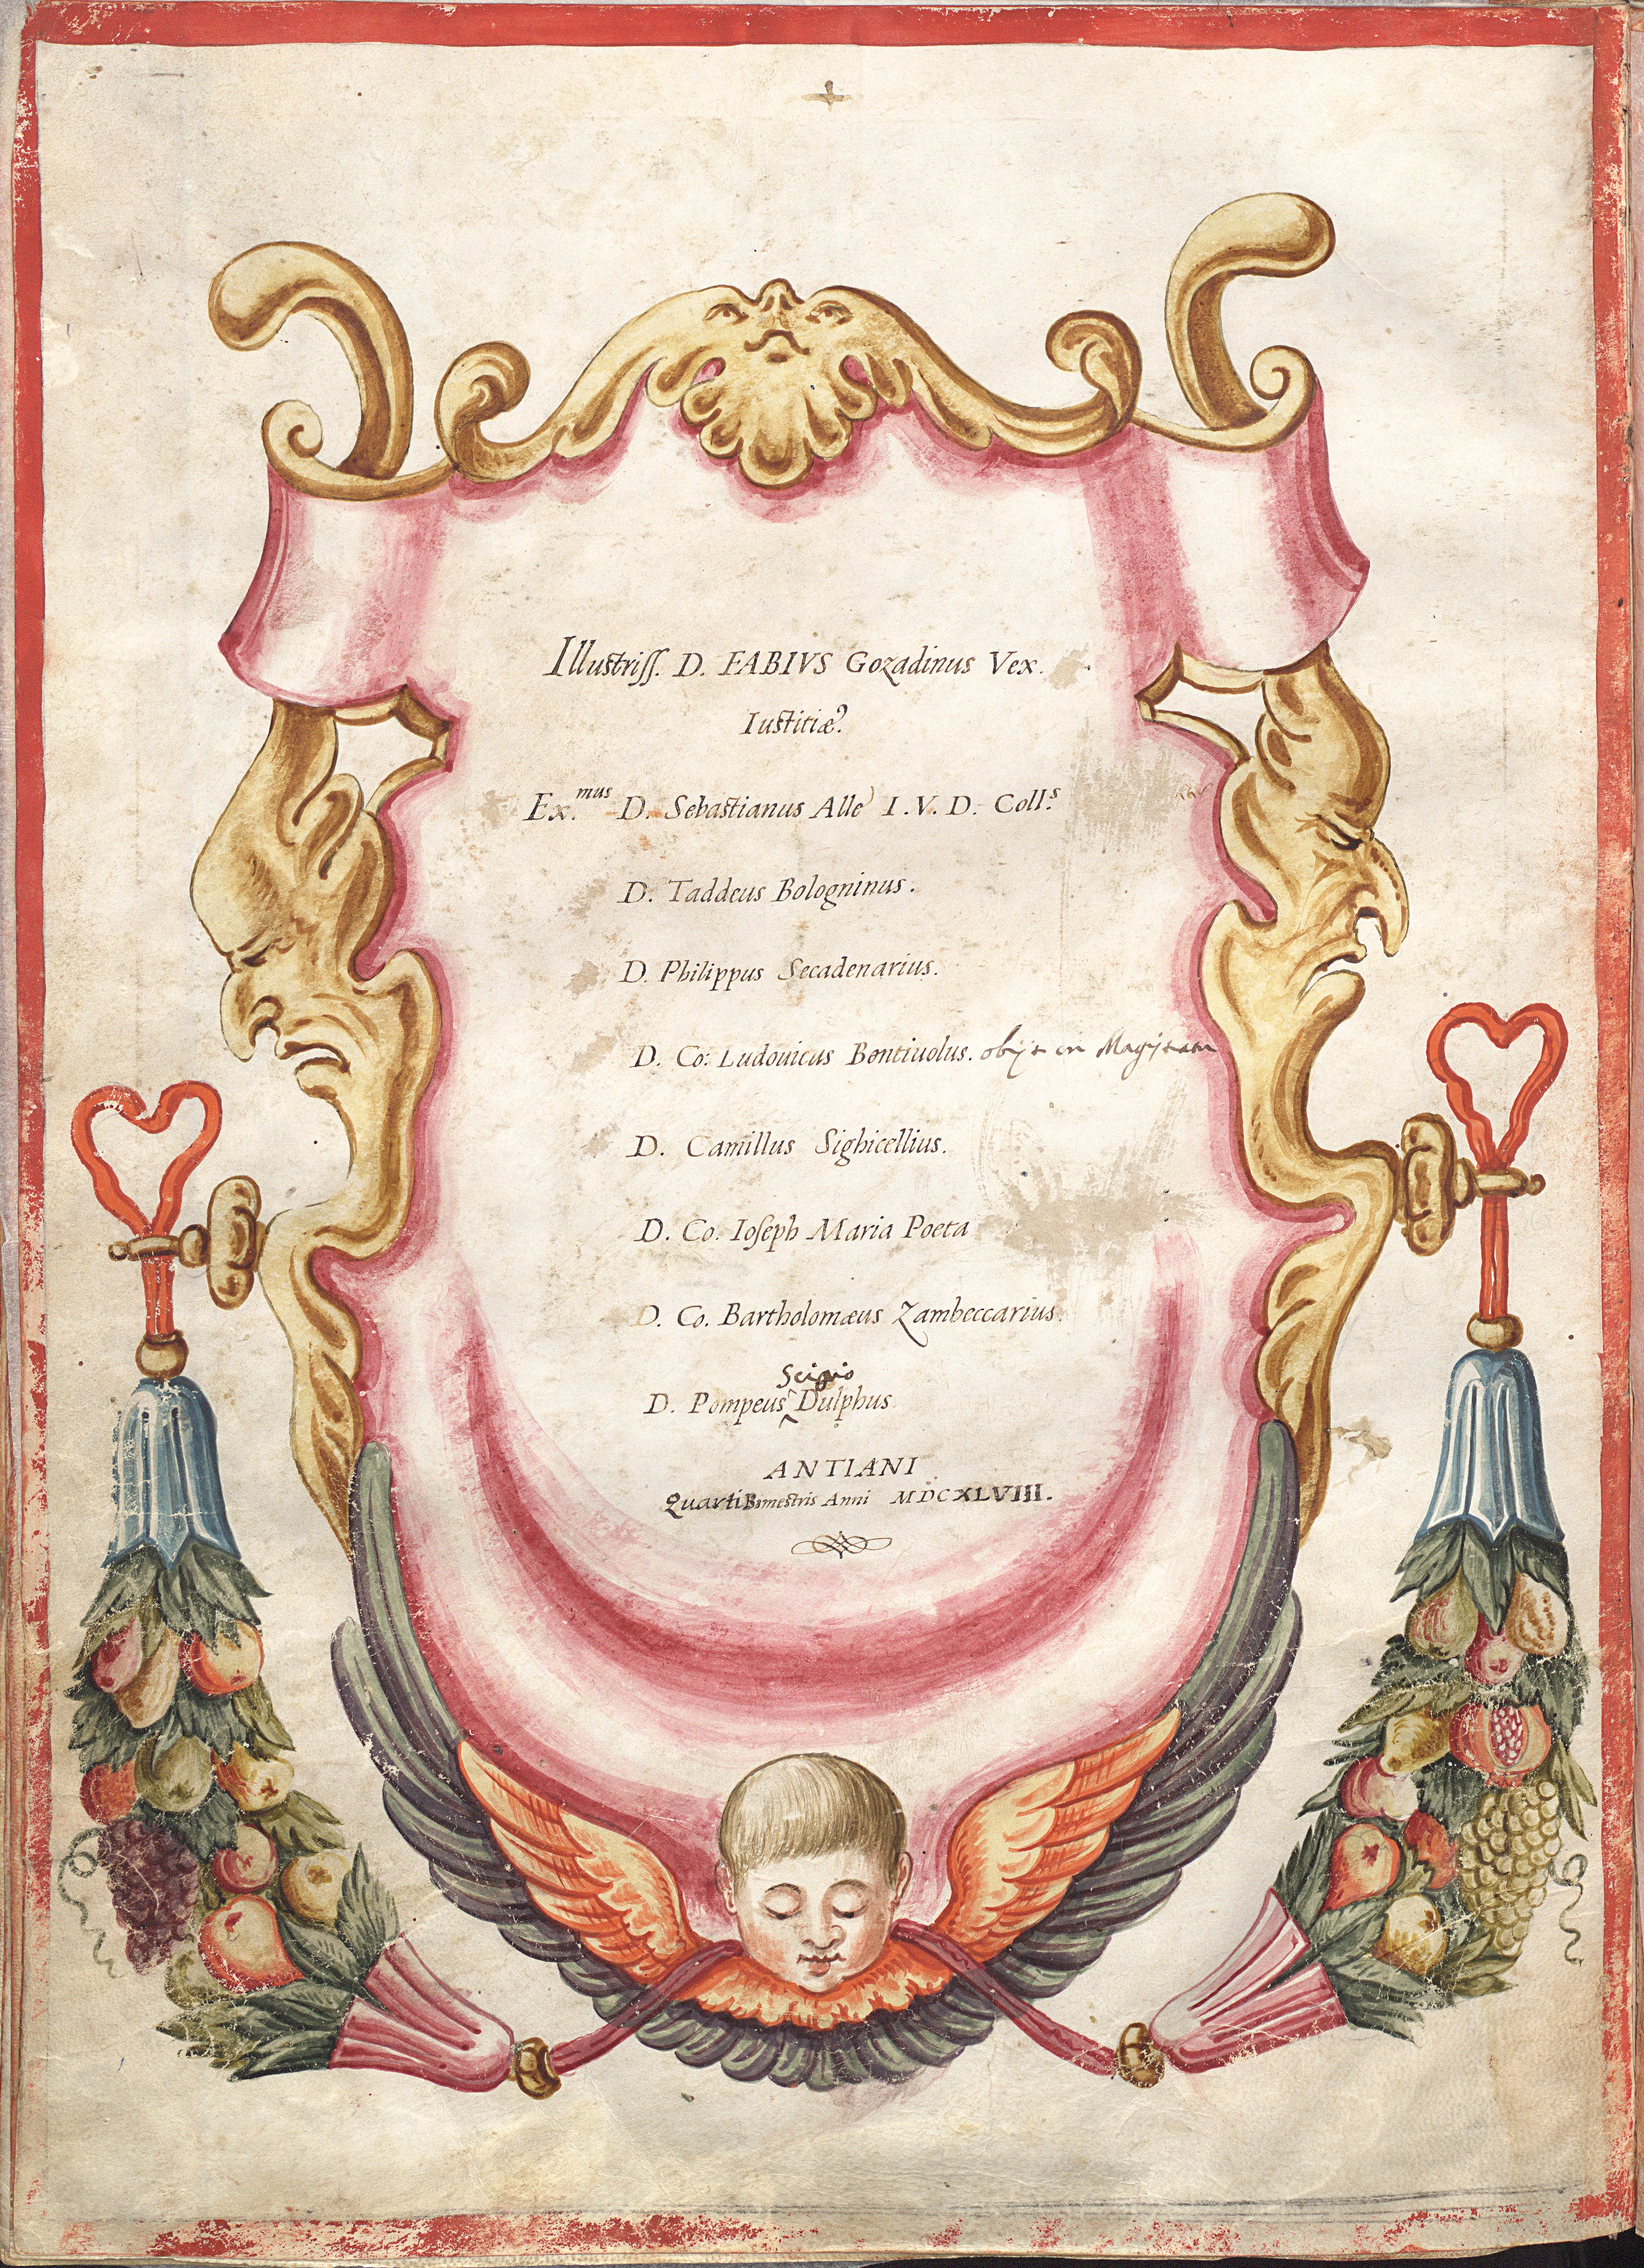 Illustriss. D. FABIVS Gozadinus Vex.
Iustitiæ.
Ex.mus D. Sebastianus Allè I. V. D. Coll.s
D. Taddeus Bologninus.
D. Philippus Secadenarius.
D. Co: Ludouicus Bentiuolus. obijt in Magistratu
D. Camillus Sighicellius.
D. Co. Ioseph Maria Poeta
D. Co. Bartholomæus Zambeccarius.
Scipio
D. Pompeus ^ Dulphus.
ANTIANI
Quarti Bimestris Anni MDCXLVIII.